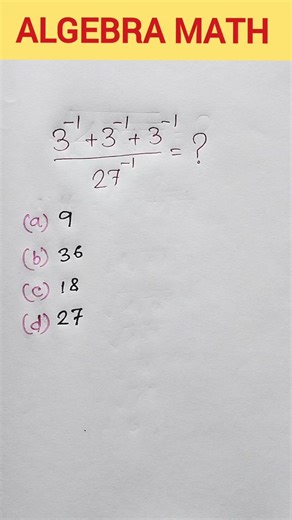 ALGEBRA MATH
3⁻¹ + 3⁻¹ + 3⁻¹
27⁻¹ = ?
(a) 9
(b) 36
(c) 18
(d) 27